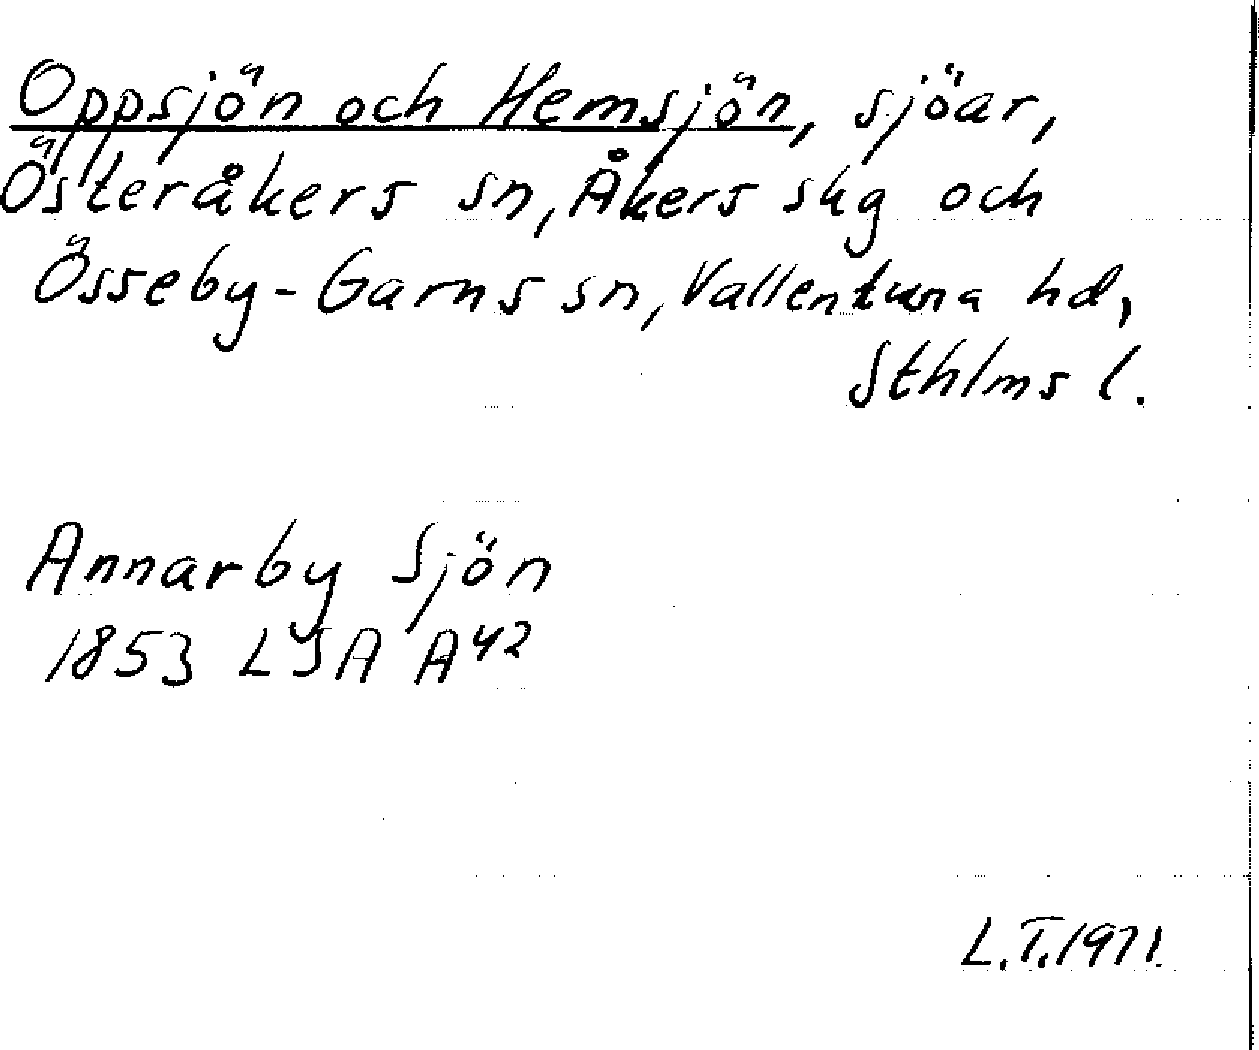 Oppsjön och Hemsjön, sjöar,
Österåkers sn, Åkers skg och
Össeby-Garns sn, Vallentuna hd,
Sthlms l.
Annarby Sjön
1853 LSA A42
L.T. 1971.